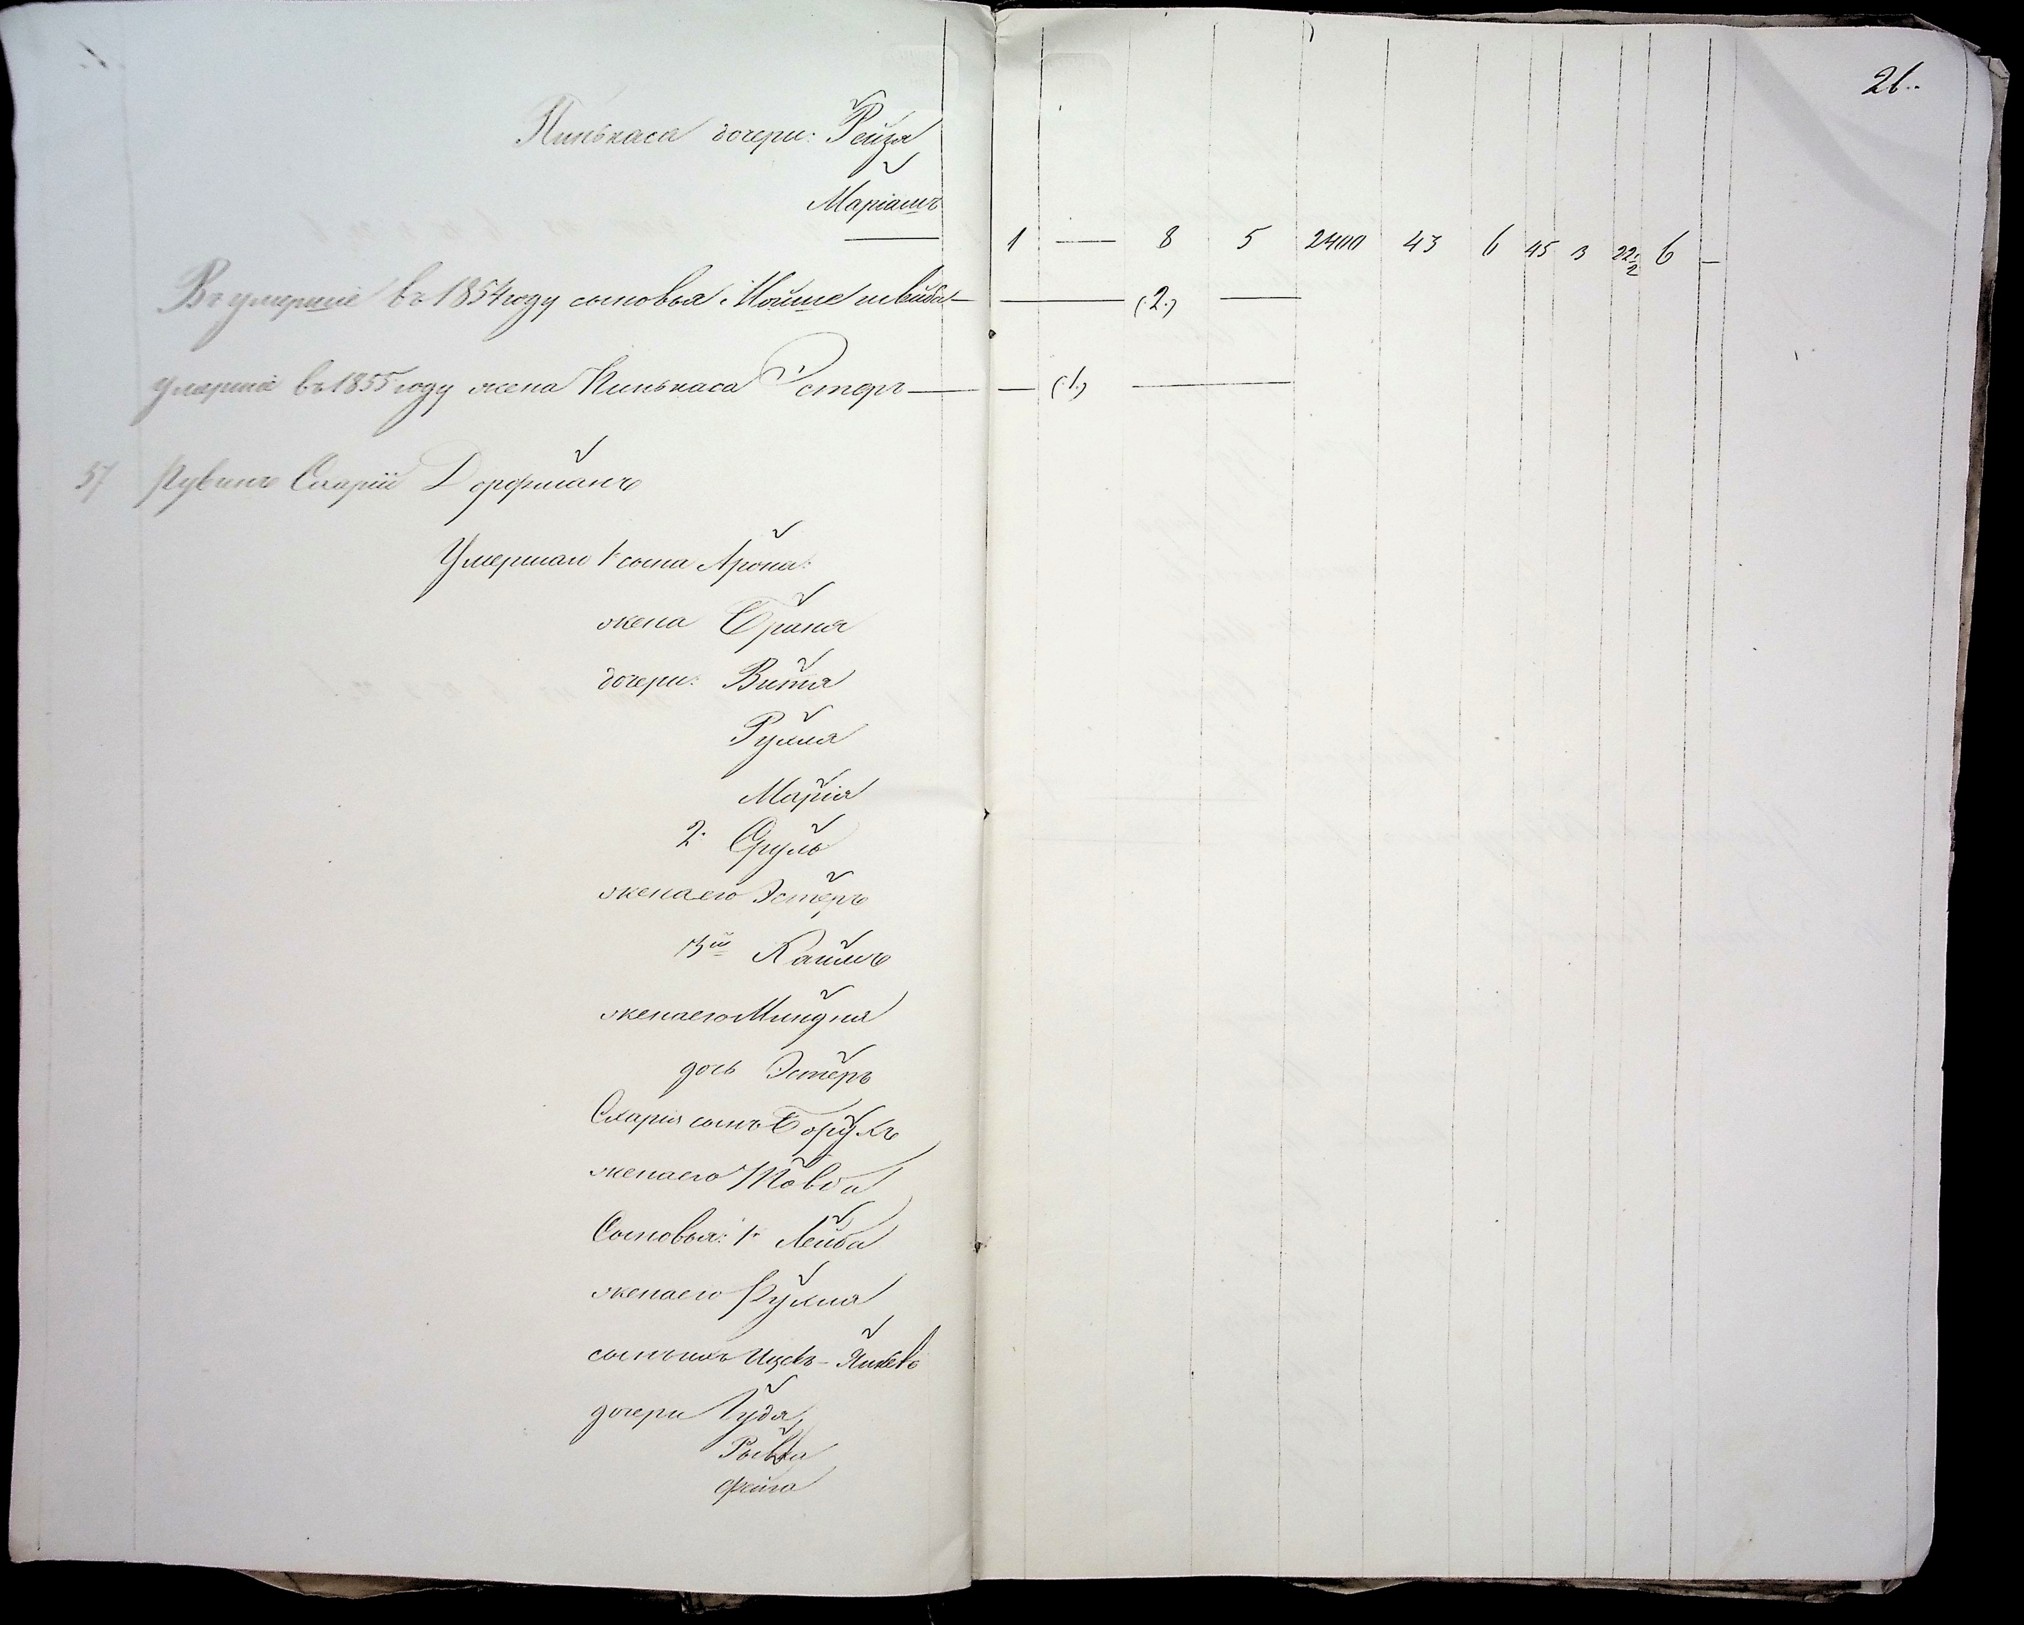 26.
Пинькаса дочери: Рейза
Маріамъ
1 — 8 5 2400 43 6 45 3 22 1/2 6 —
умершіе въ 1854 году сыновья Мойше и Лейба — (2.) —
умершіе въ 1855 году жена Пинькаса Эстеръ — (1.) —
57 Рувинъ Схарій Дорфманъ
Умершаго 1 сына Арона:
жена Браня
дочери: Витя
Рухля
Марія
2. Сруль
жена его Эстеръ
3й Хаимъ
жена его Миндля
дочь Эстеръ
Схарія сынъ Борухъ
жена его Товба
Сыновья: 1. Лейба
жена его Рухля
сынъ ихъ Ицекъ-Янкевъ
дочери Гудя,
Рывка
Фейга